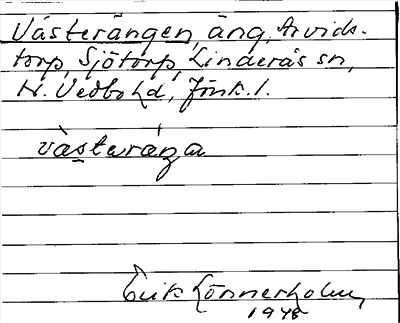 Västerängen, äng, Arvids-
torp, Sjötorp, Linderås sn,
N. Vedbo hd, Jönk. l.
västəráŋa
Erik Lönnerholm,
1948